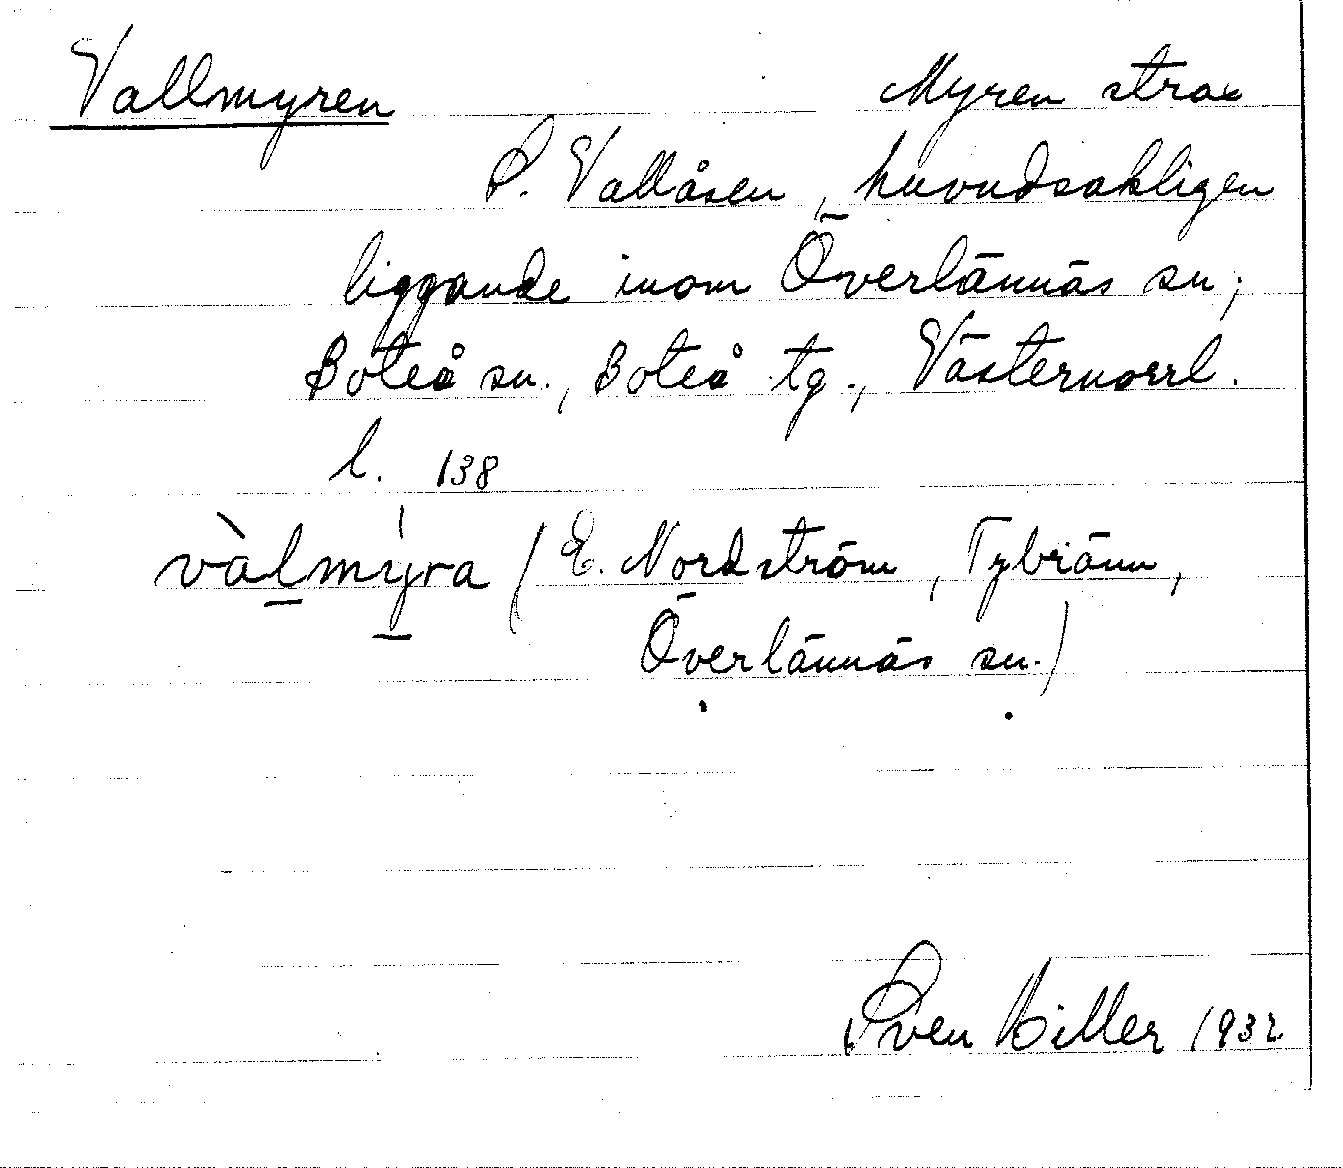 Vallmyren Myren strax
S. Vallåsen, huvudsakligen
liggande inom Överlännäs sn;
Boteå sn., Boteå tg., Västernorrl.
l. 138
vàl̠mýra (E. Nordström, Tybränn,
Överlännäs sn.)
Sven Hiller 1932